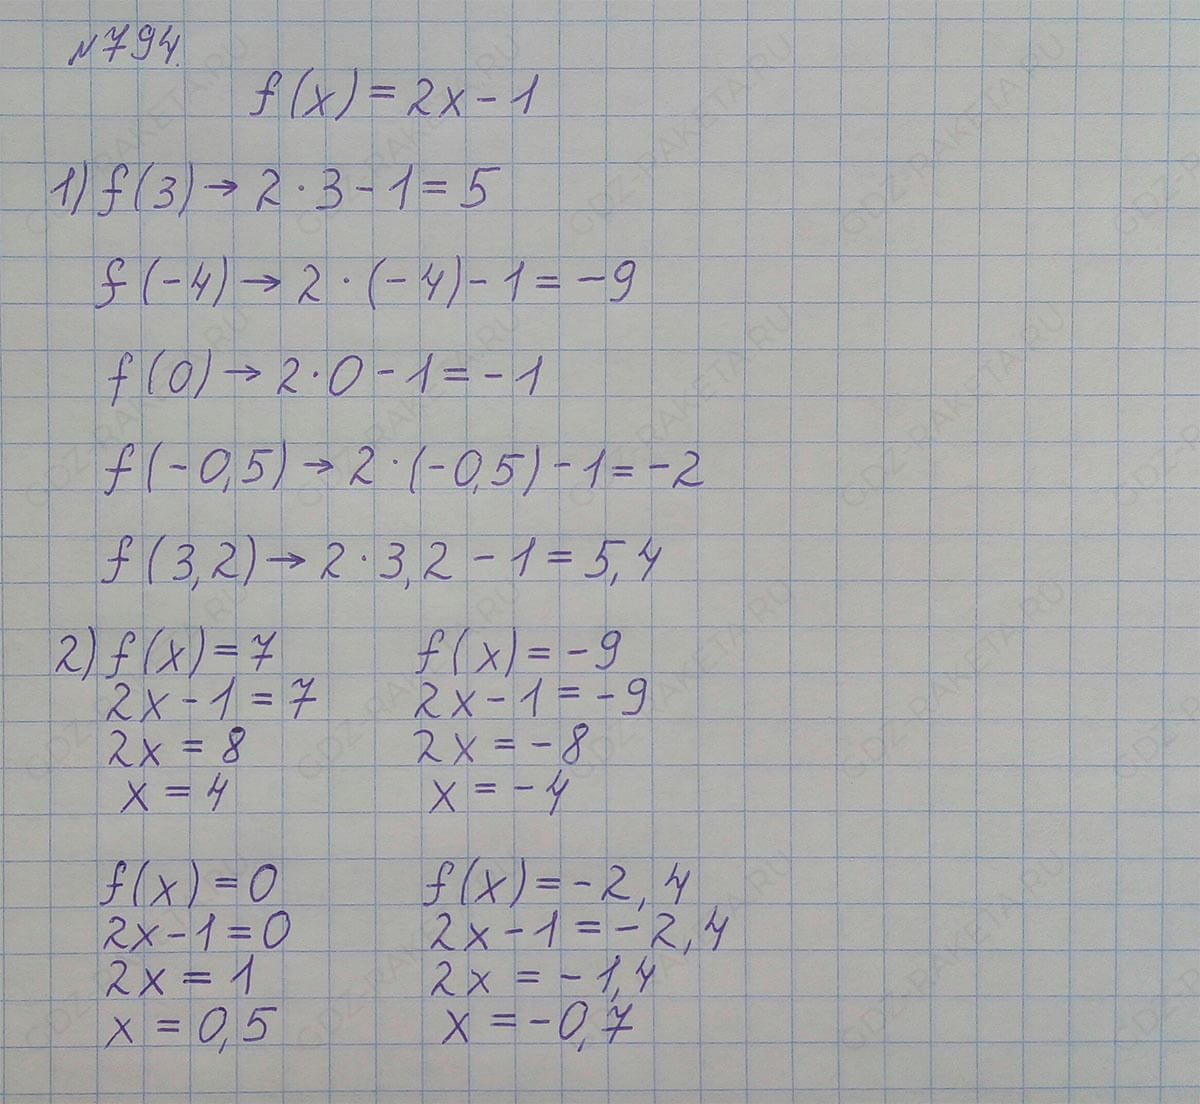 №794.
f(x)=2x-1
1) f(3)→2·3-1=5
f(-4)→2·(-4)-1=-9
f(0)→2·0-1=-1
f(-0,5)→2·(-0,5)-1=-2
f(3,2)→2·3,2-1=5,4
2) f(x)=7
2x-1=7
2x=8
x=4
f(x)=-9
2x-1=-9
2x=-8
x=-4
f(x)=0
2x-1=0
2x=1
x=0,5
f(x)=-2,4
2x-1=-2,4
2x=-1,4
x=-0,7
GDZ-RAKETA.RU